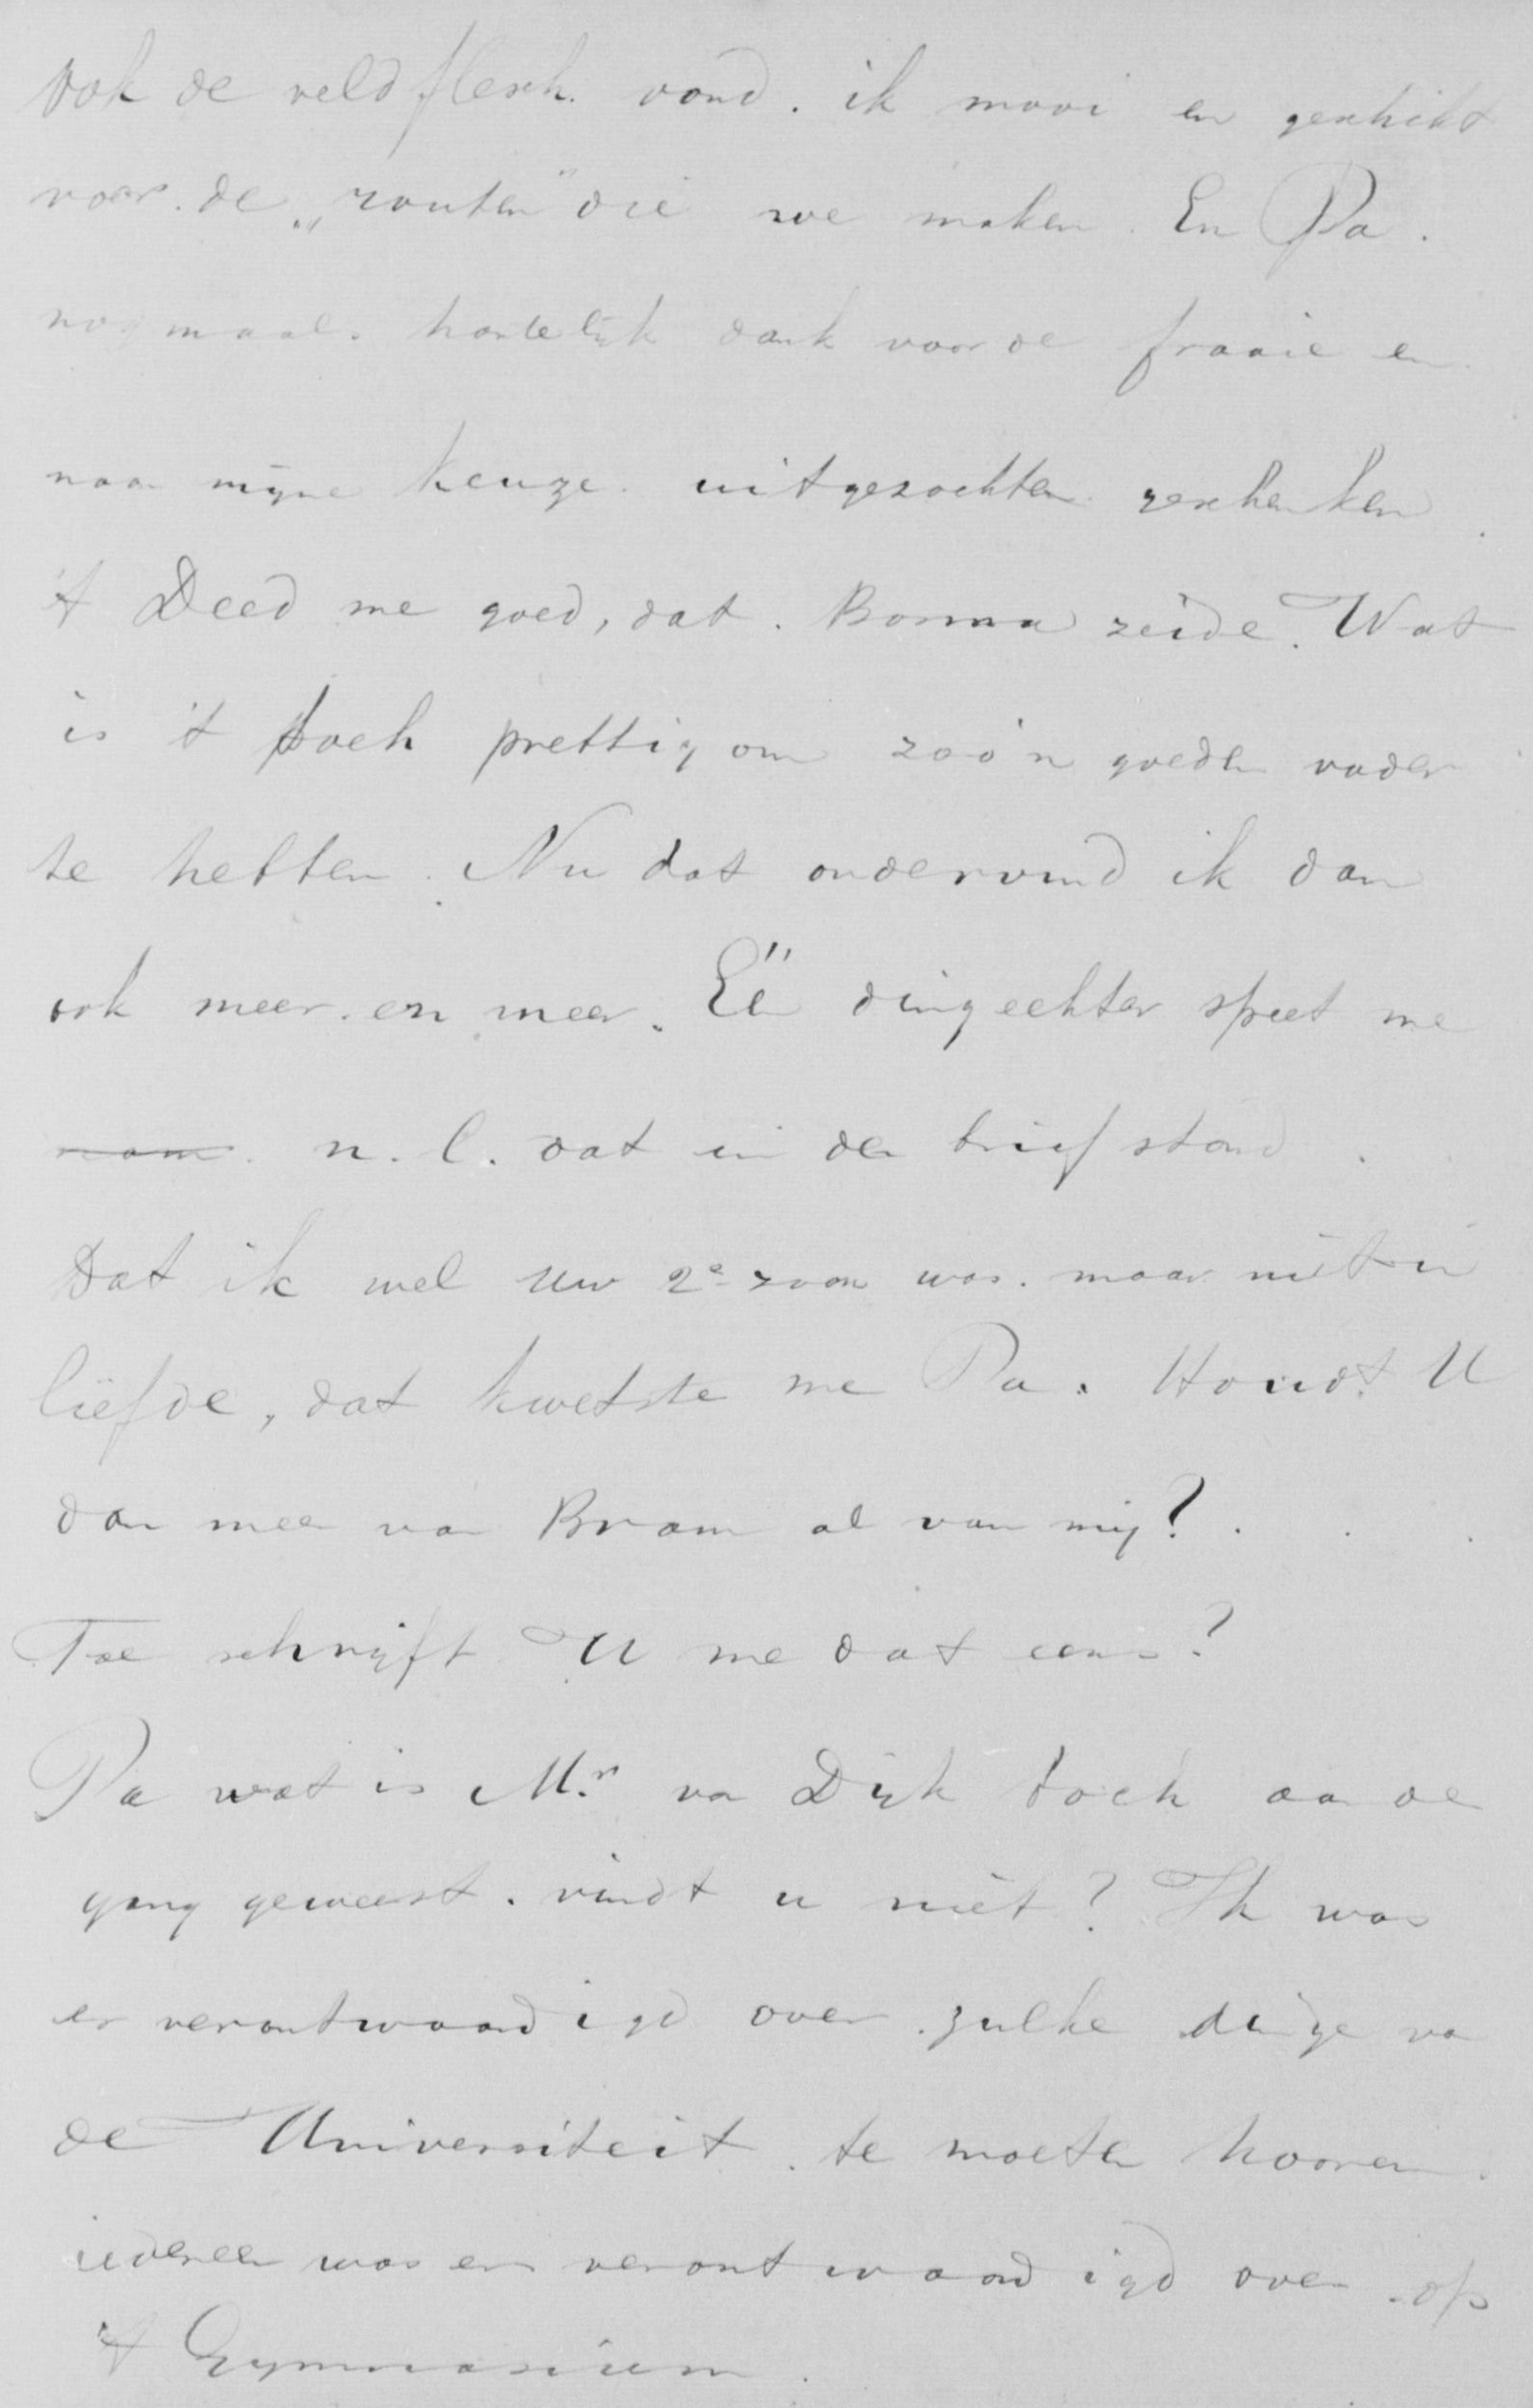 Ook de veldflesch. vond. ik mooi en geschikt
voor. de „routen" die we maken. En Pa.
nogmaals hartelijk dank voor de fraaie en
naar mijne keuze. uitgezochten geschenken.
't Deed me goed, dat. Bosma zeide. Wat
is 't toch prettig om zoo'n goeden vader
te hebben. Nu dat ondervind ik dan
ook meer. en meer. Eén ding echter speet me
n. l. dat in den brief stond.
Dat ik wel uw 2e zoon was. maar niet in
liefde, dat kwetste me Pa. Houdt U
dan meer van Bram al van mij?
Toe schrijft U me dat eens?
Pa wat is Mr. van Dijk toch aan de
gang geweest. vindt u niet? Ik was
er verontwaardigd over zulke dingen van
de Universiteit. te moeten hooren.
iedereen was er verontwaardigd over. op
't Gymnasium.